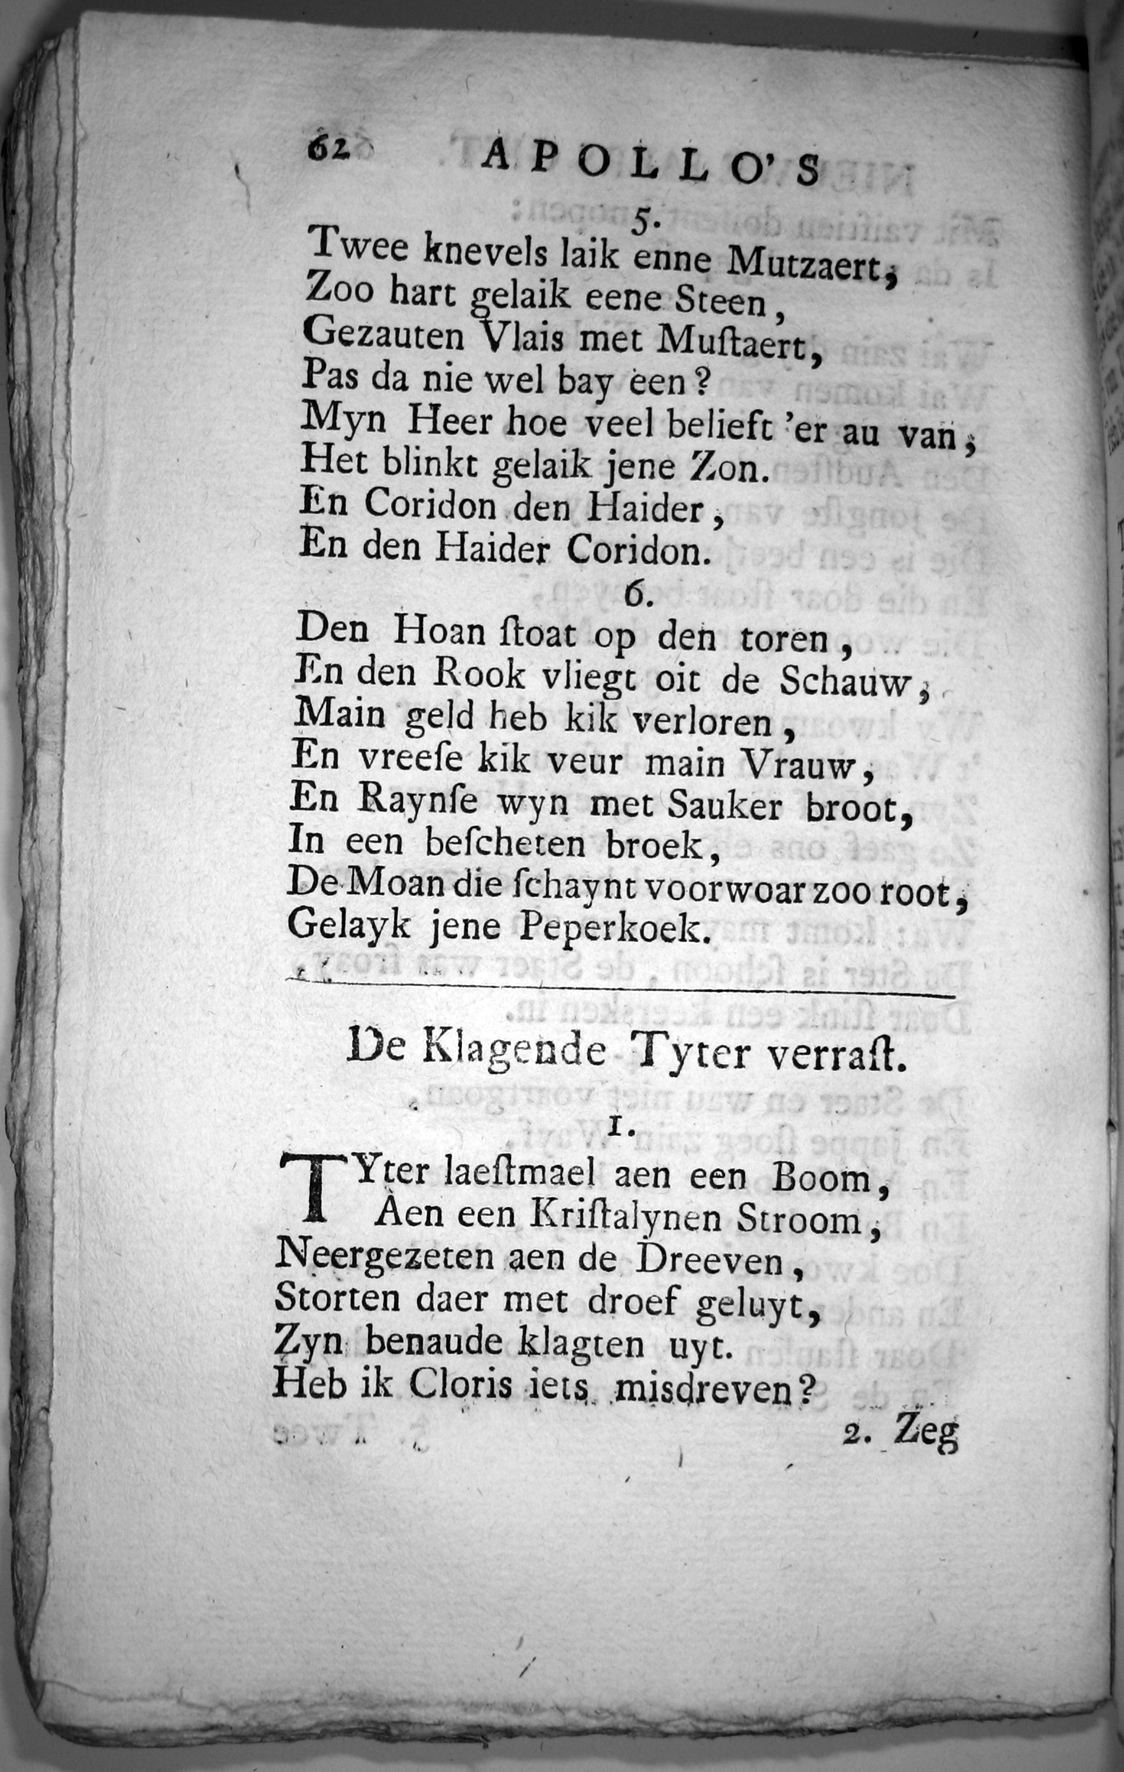 62 APOLLO'S
5.
Twee knevels laik enne Mutzaert,
Zoo hart gelaik eene Steen,
Gezauten Vlais met Muſtaert,
Pas da nie wel bay een?
Myn Heer hoe veel belieft 'er au van,
Het blinkt gelaik jene Zon.
En Coridon den Haider,
En den Haider Coridon.
6.
Den Hoan ſtoat op den toren,
En den Rook vliegt oit de Schauw,
Main geld heb kik verloren,
En vreeſe kik veur main Vrauw,
En Raynſe wyn met Sauker broot,
In een beſcheten broek,
De Moan die ſchaynt voorwoar zoo root,
Gelayk jene Peperkoek.
De Klagende Tyter verraſt.
1.
TYter laeſtmael aen een Boom,
Aen een Kriſtalynen Stroom,
Neergezeten aen de Dreeven,
Storten daer met droef geluyt,
Zyn benaude klagten uyt.
Heb ik Cloris iets misdreven?
2. Zeg